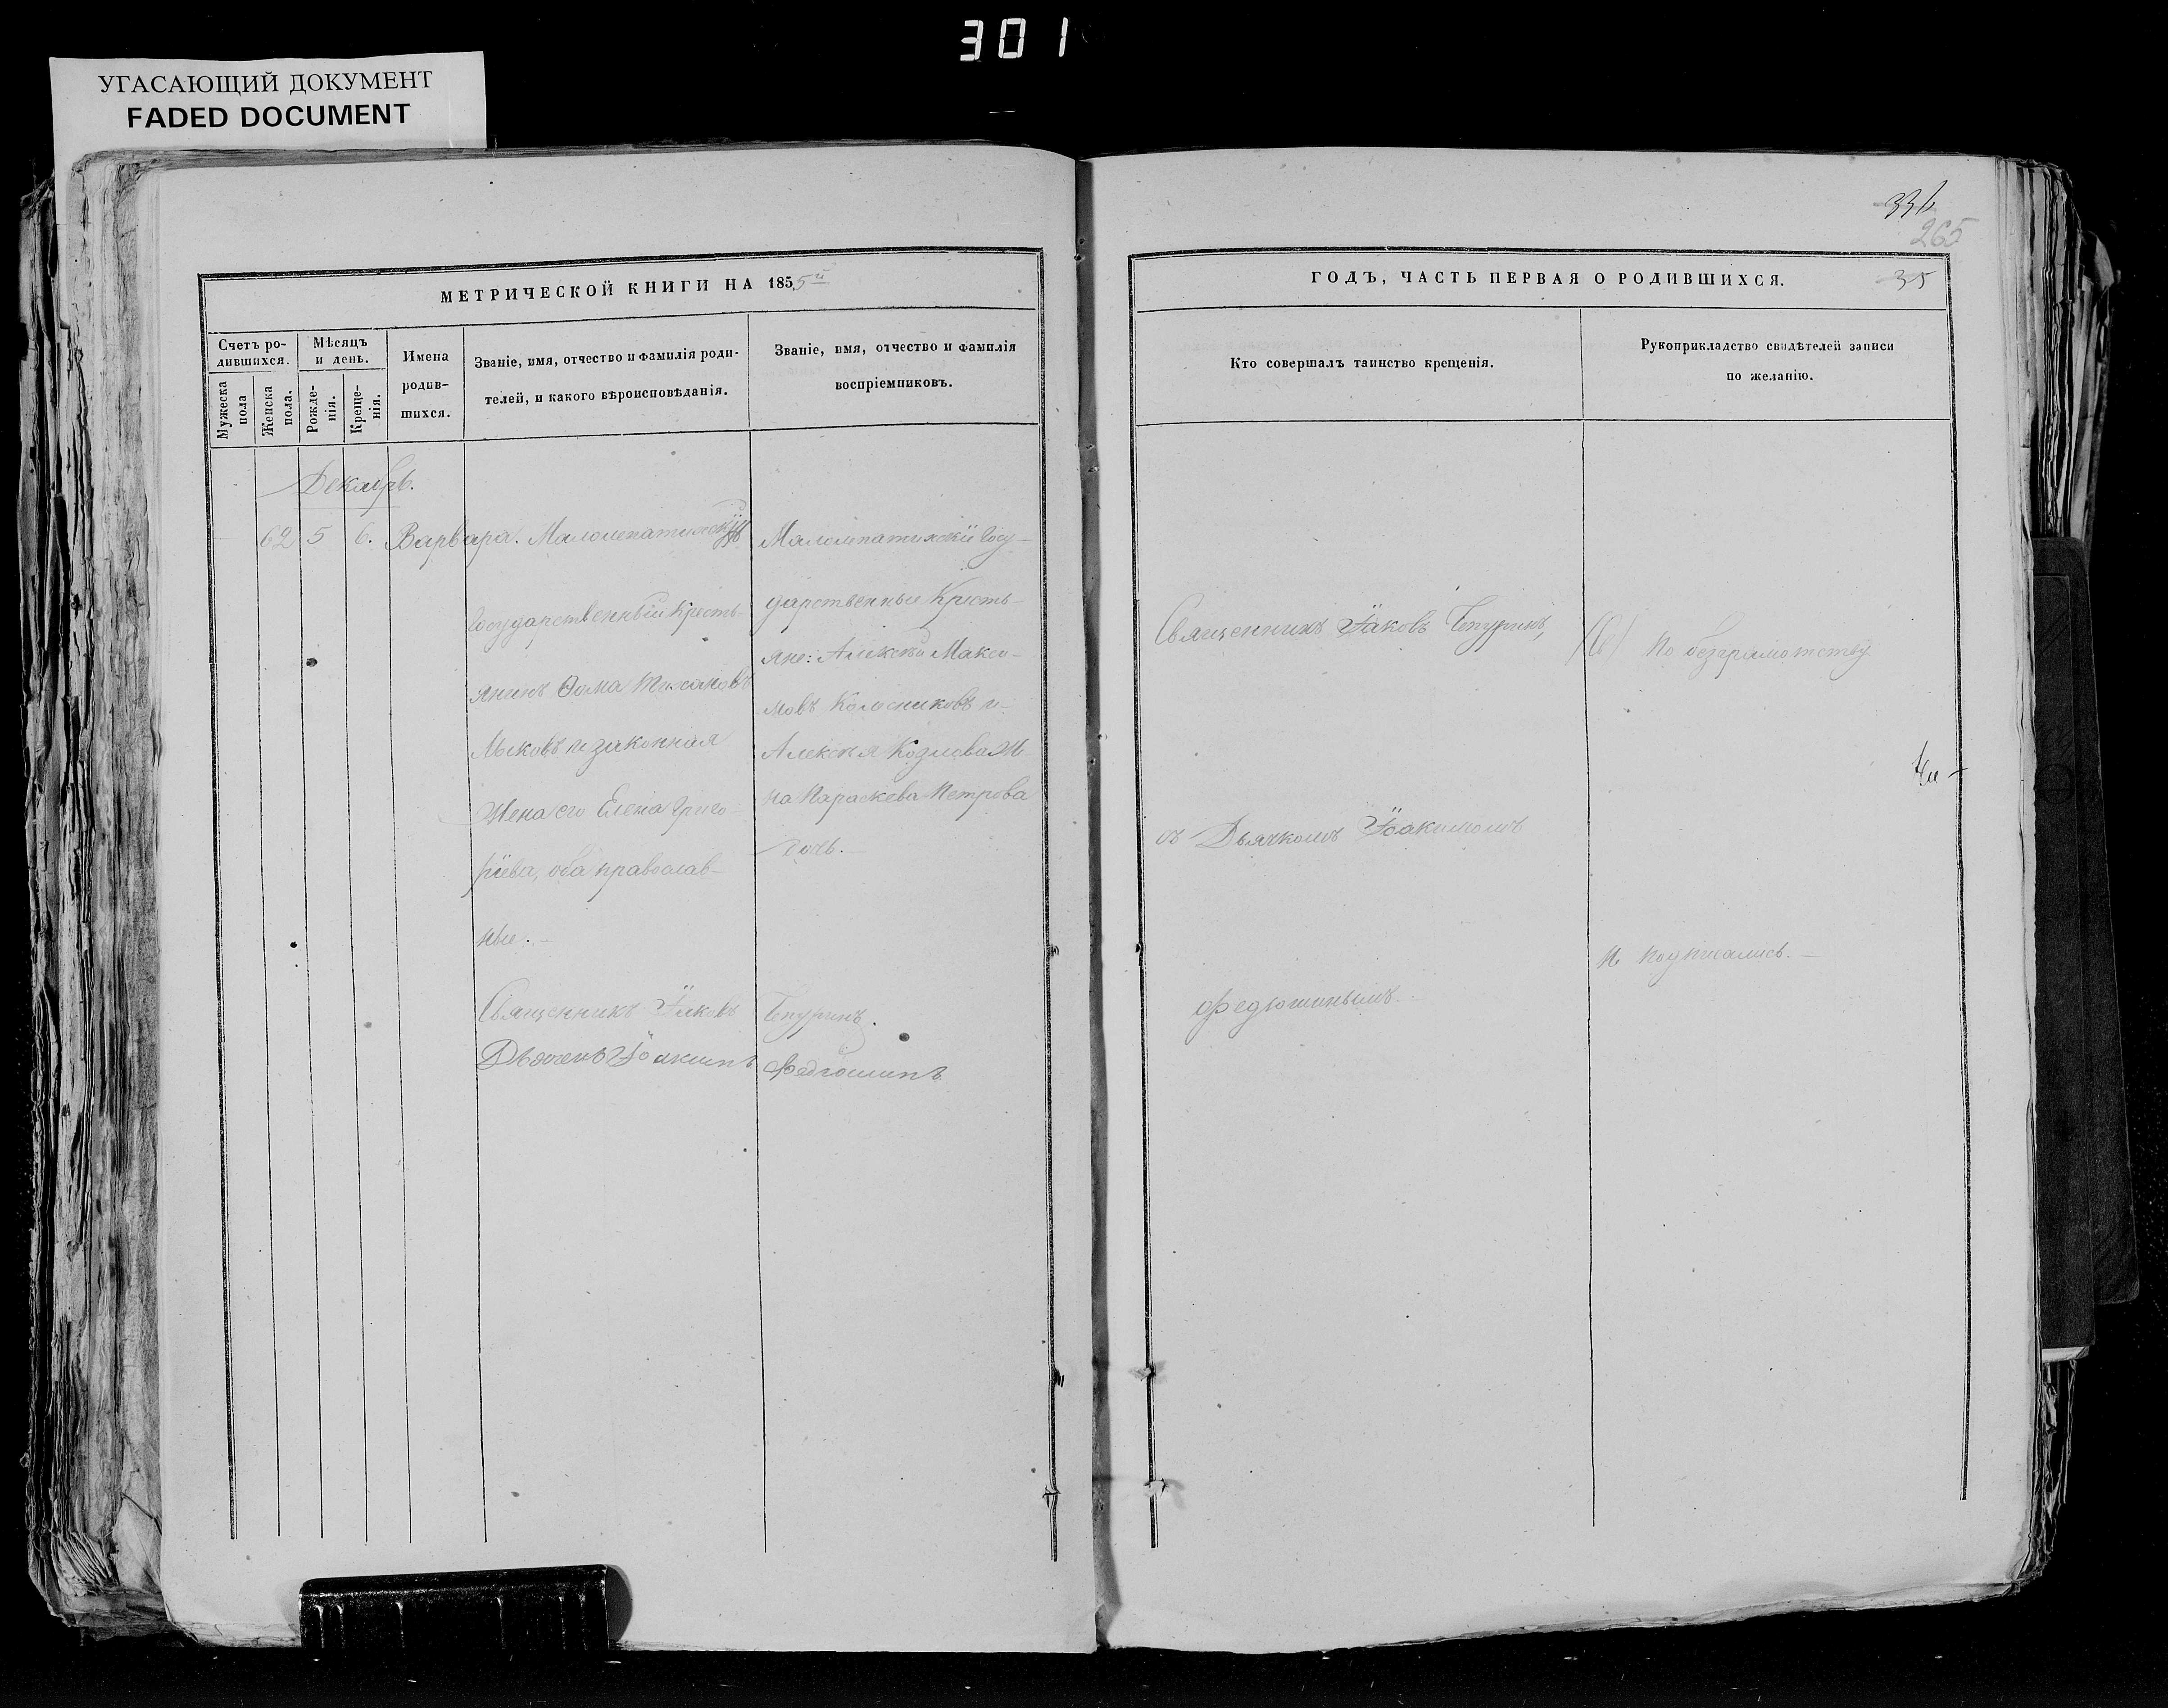 301
УГАСАЮЩИЙ ДОКУМЕНТ
FADED DOCUMENT
МЕТРИЧЕСКОЙ КНИГИ НА 1855й
Счетъ ро-
дившихся.
Мѣсяцъ
и день.
Мужеска
пола
Женска
пола.
Рожде-
нія.
Креще-
нія.
Имена
родив-
шихся.
Званіе, имя, отчество и фамилія роди-
телей, и какого вѣроисповѣданія.
Званіе, имя, отчество и фамилія
воспріемниковъ.
Декабрь.
62 5 6. Варвара.
Государственный Кресть-
янинъ Ѳома
Лыковъ и законная
Жена его Елена Григо-
рїева, оба православ-
ные.
Священникъ Їаковъ
Дьячекъ Їоакимъ
Госу-
дарственные Кресть-
яне: Алексѣй Макси-
мовъ Колесниковъ и
Алексѣя Козлова Же-
на Параскева Петрова
дочь.
Чепуринъ.
Федюшинъ
336
265
ГОДЪ, ЧАСТЬ ПЕРВАЯ О РОДИВШИХСЯ.
35
Кто совершалъ таинство крещенія.
Рукоприкладство свидѣтелей записи
по желанію.
Священникъ Їаковъ Чепуринъ,
съ Дьячкомъ Їоакимомъ
Федюшинымъ
По безграмотству
не подписались.